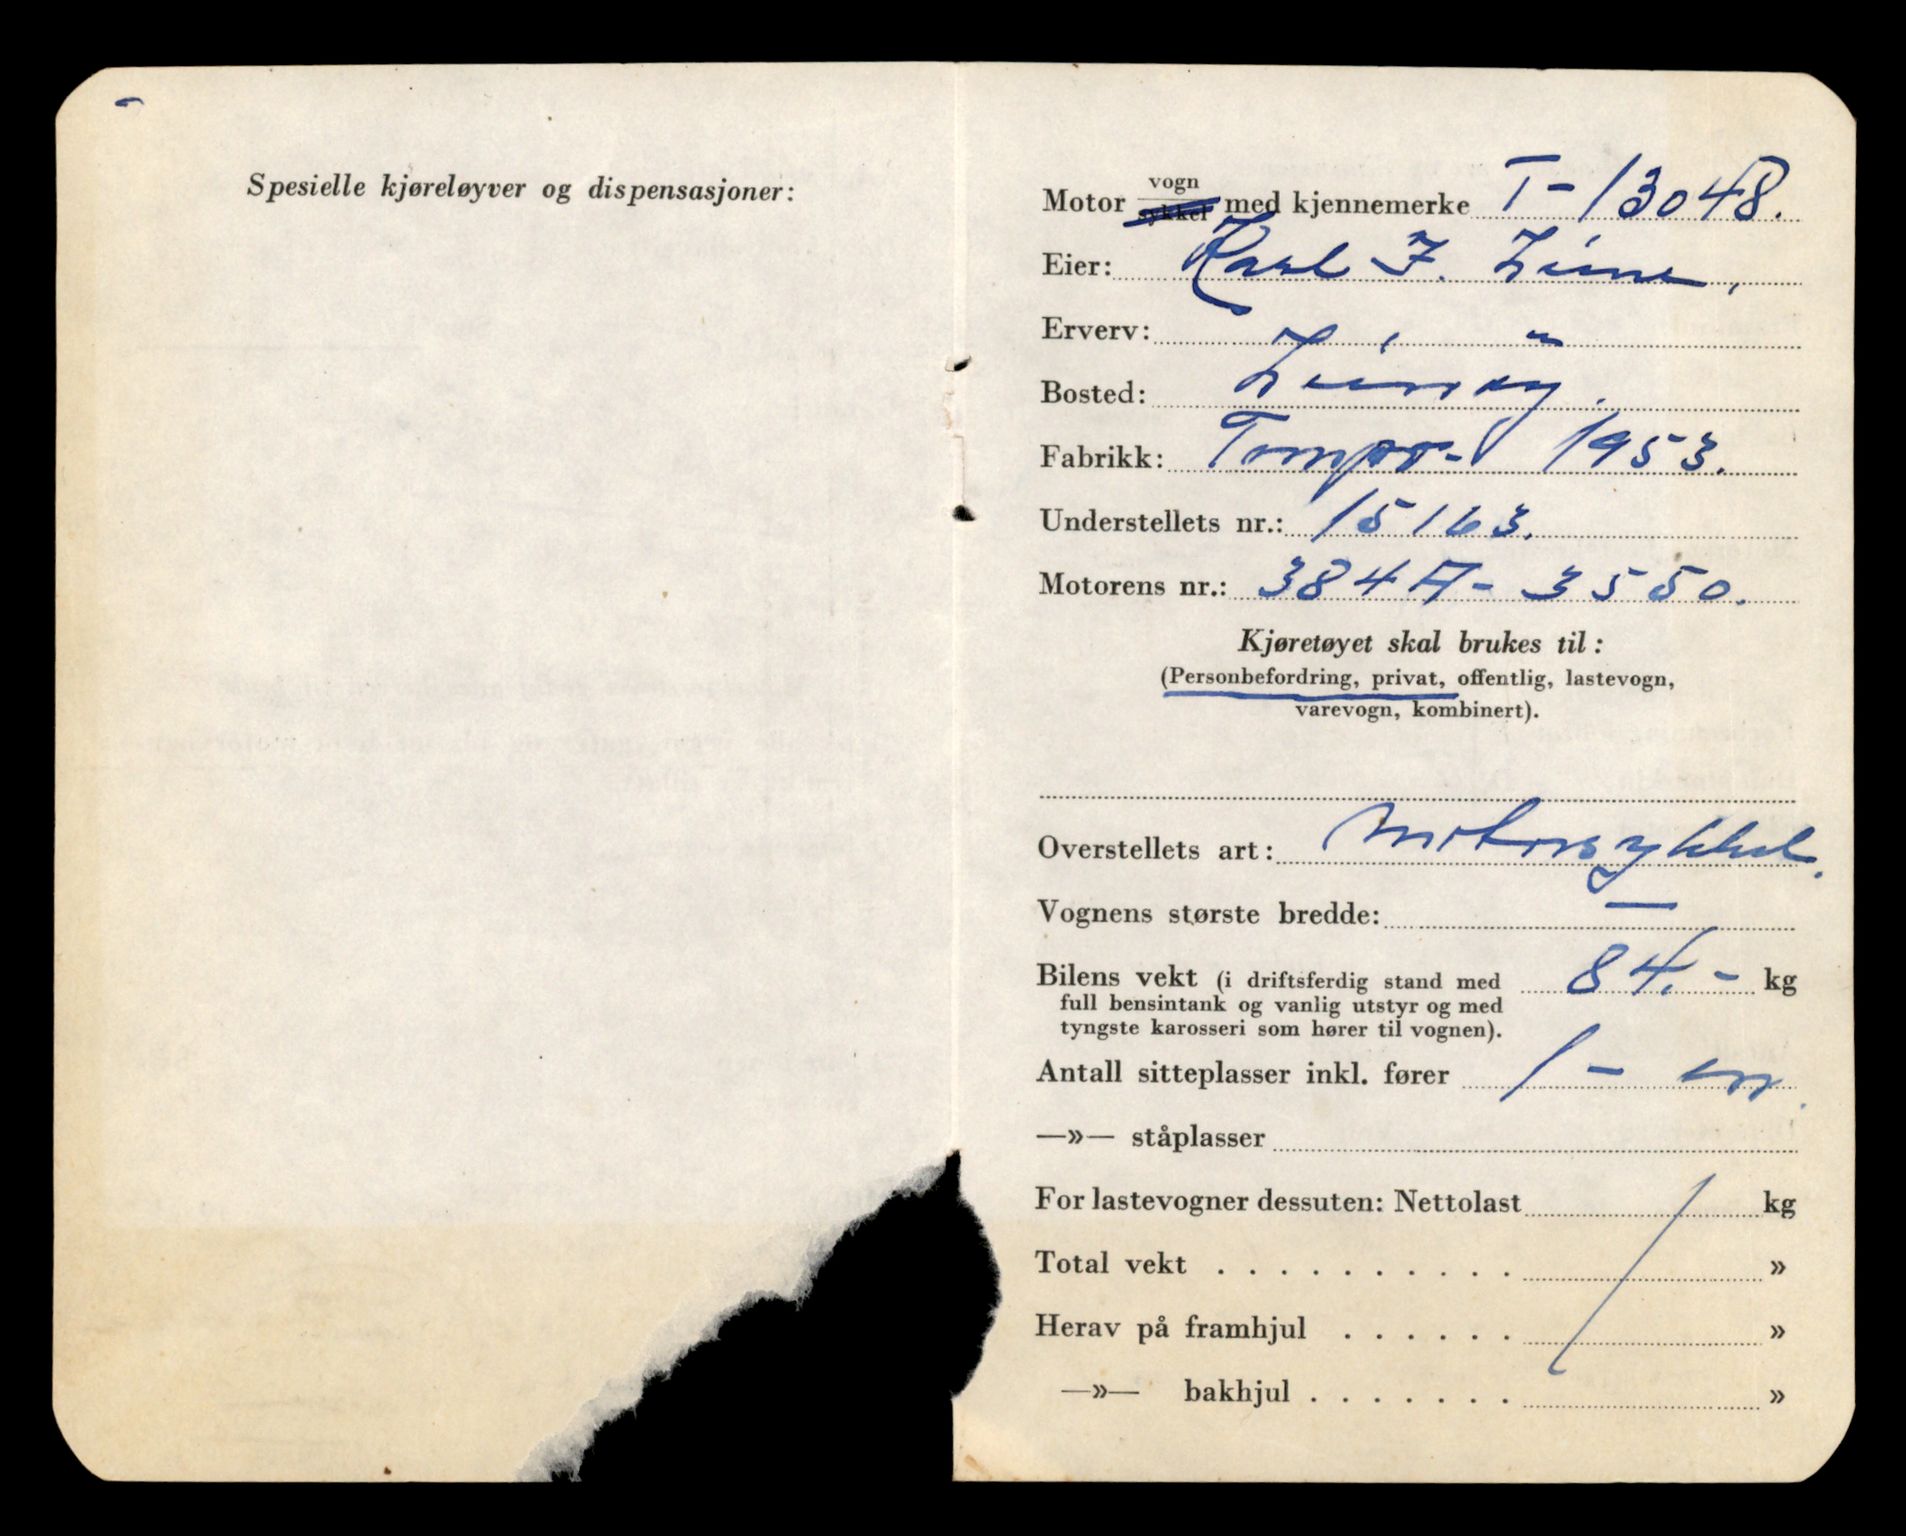 Spesielle kjøreløyver og dispensasjoner:
Motor vogn sykkel med kjennemerke T-13048.
Eier: Karl J. Lime,
Erverv:
Bosted:
Fabrikk: Tempo - 1953.
Understellets nr.: 15163.
Motorens nr.: 384A - 3550.
Kjøretøyet skal brukes til:
(Personbefordring, privat, offentlig, lastevogn,
varevogn, kombinert).
Overstellets art: Motorsykkel.
Vognens største bredde: —
Bilens vekt (i driftsferdig stand med 84.- kg
full bensintank og vanlig utstyr og med
tyngste karosseri som hører til vognen).
Antall sitteplasser inkl. fører 1 - en.
—»— ståplasser
For lastevogner dessuten: Nettolast kg
Total vekt . . . . . . . . . . »
Herav på framhjul . . . . . . »
—»— bakhjul . . . . . . . »